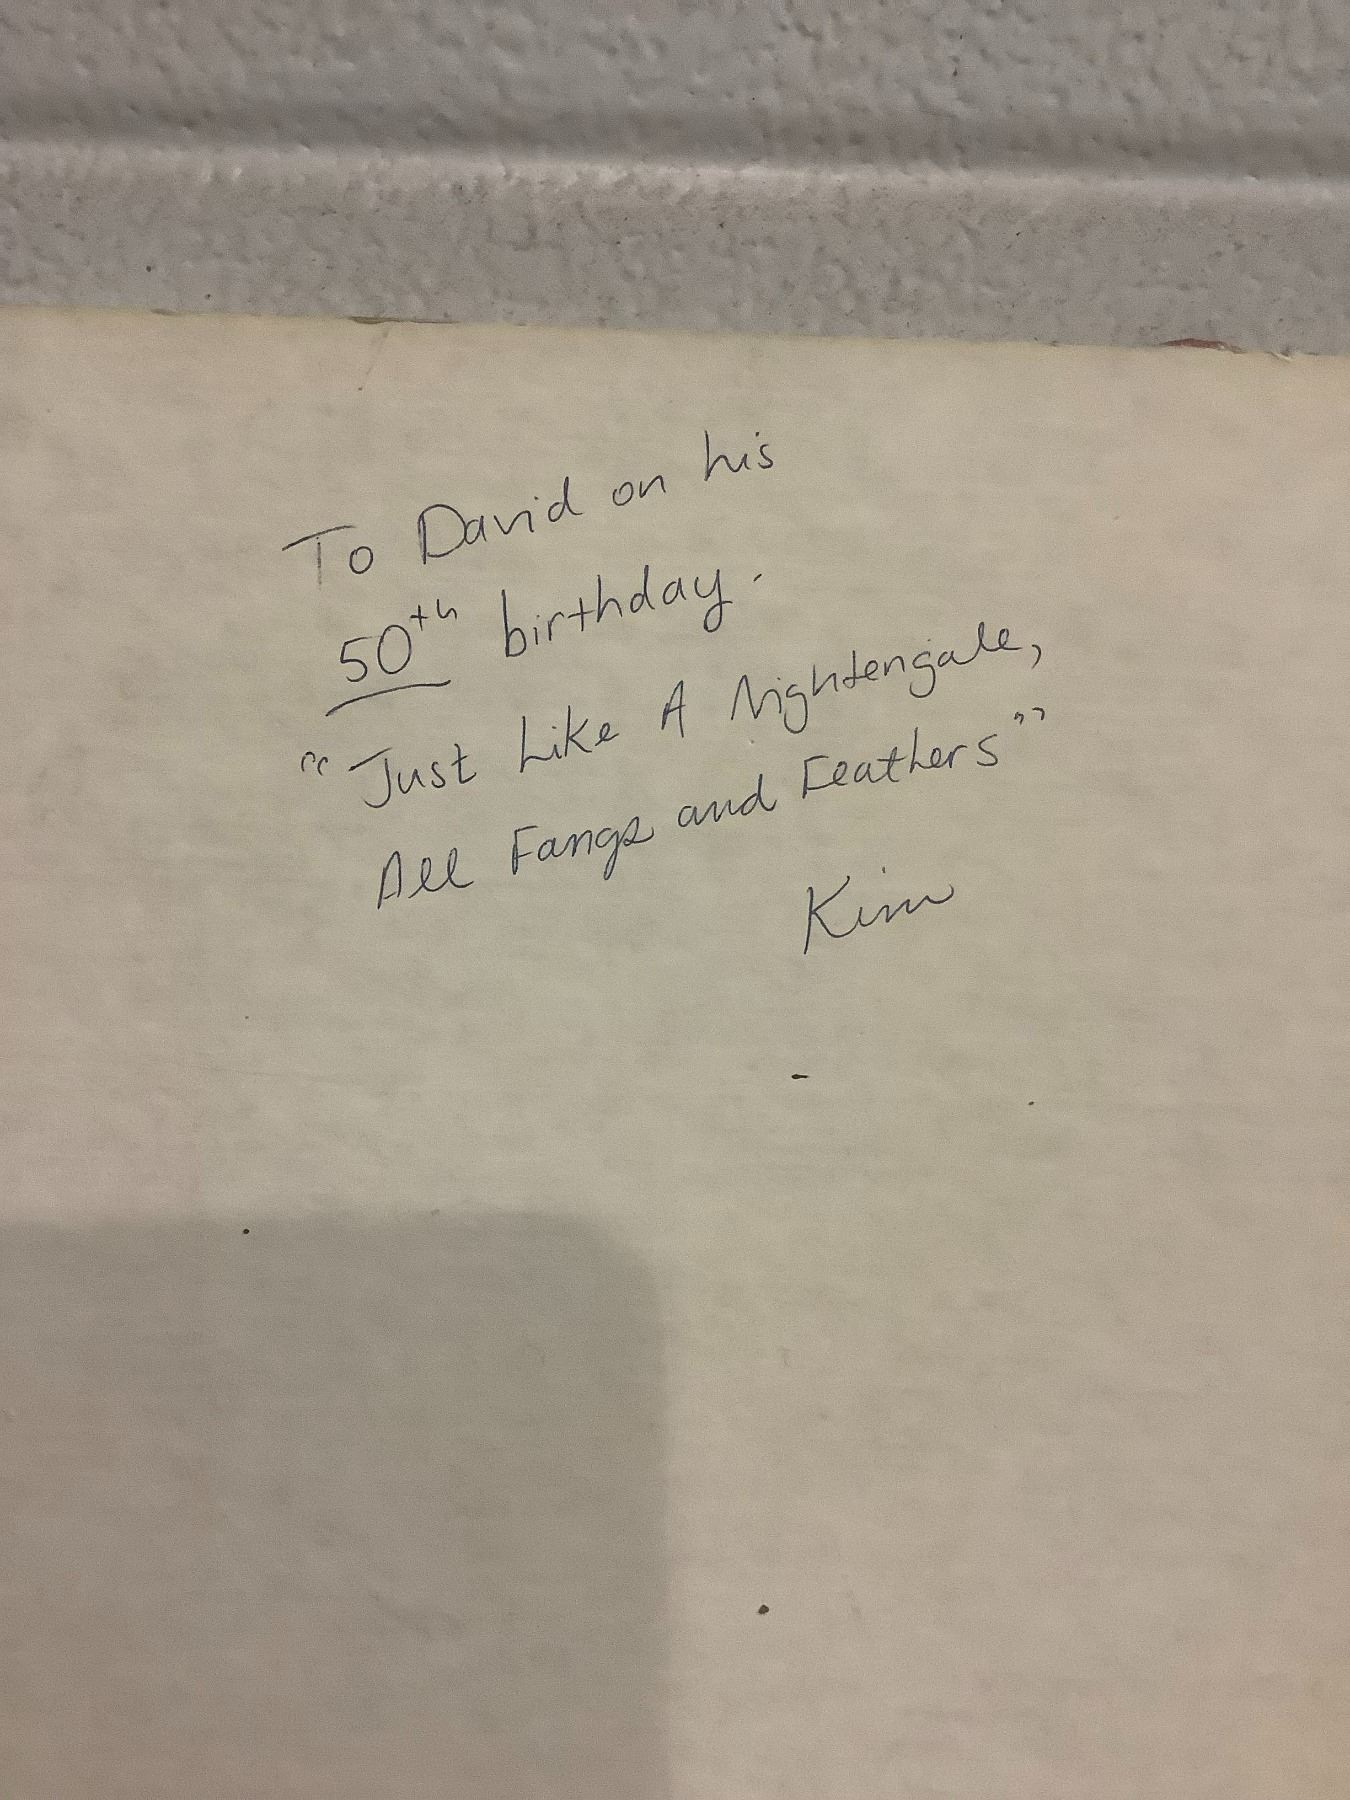 To David on his
50th birthday.
"Just Like A Nightengale,
All Fangs and Feathers"
Kim